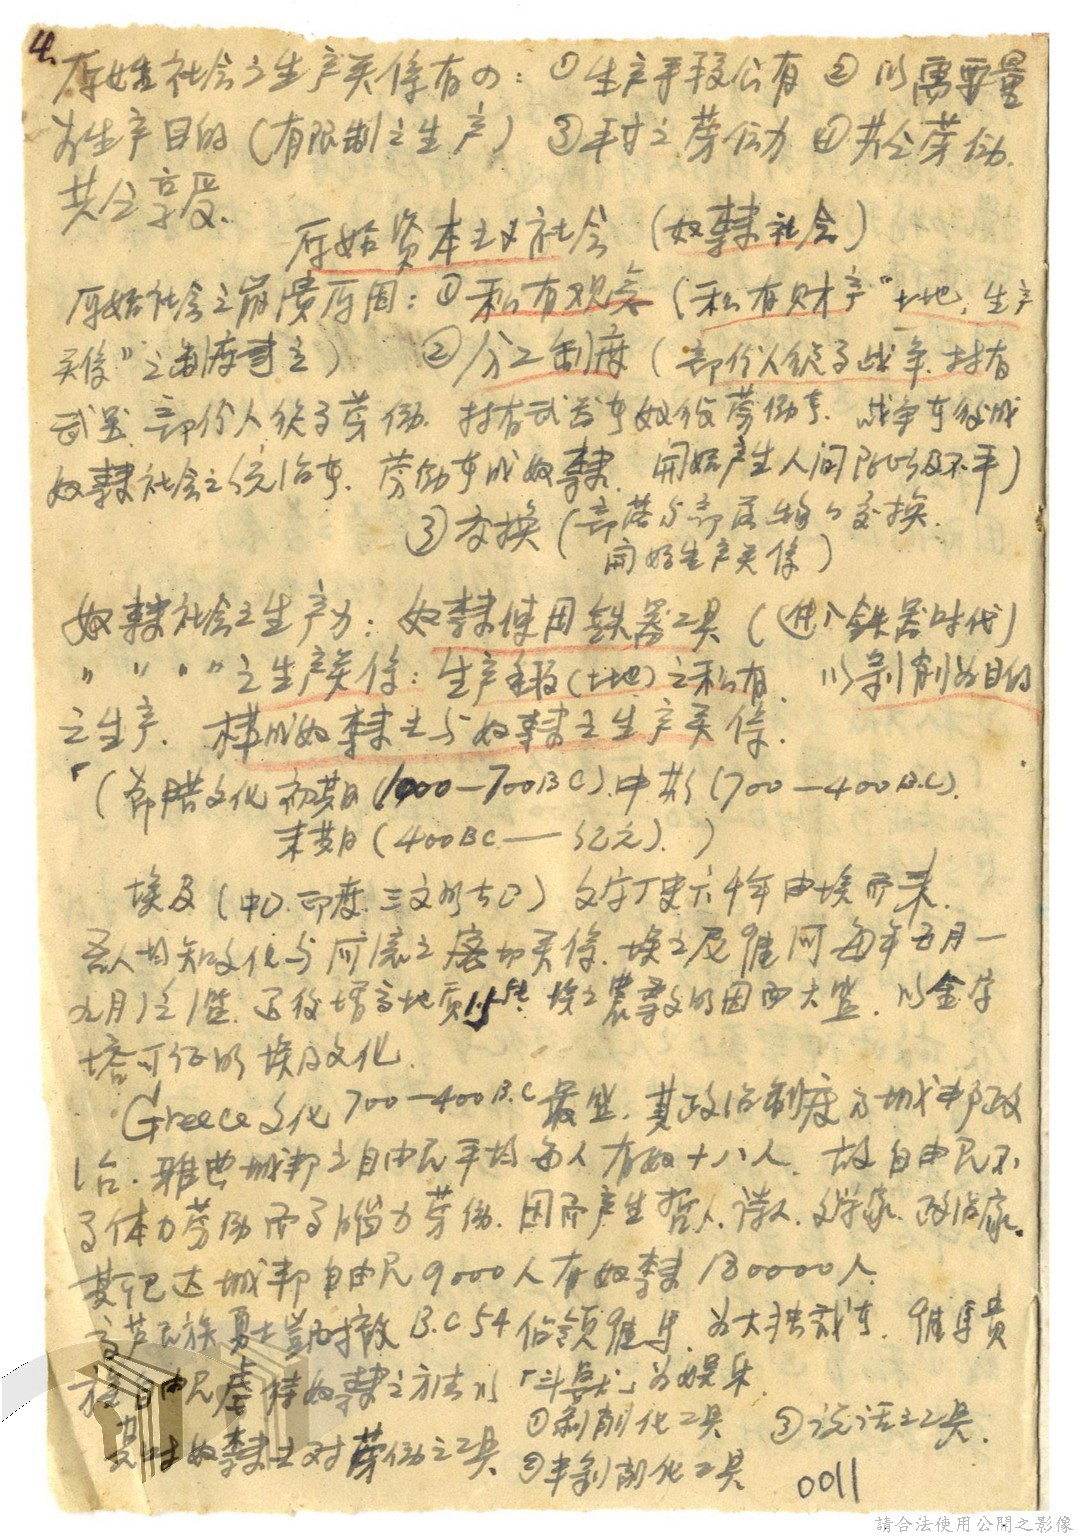 4.
原始社会之生产关係有四：①生产手段公有 ②以需要量
为生产目的（有限制之生产） ③平等之劳働力 ④共仝劳働.
共仝享受.
原始资本主义社会（奴隶社会）
原始社会之崩溃原因：①私有观念（私有财产“土地，生产
关係”之制度建立） ②分工制度（部份人从事战争，持有
武器，部份人从事劳働. 持有武器者奴役劳働者. 战争者後成
奴隶社会之统治者. 劳働者成奴隶. 開始产生人间阶级不平）
③交换（部落与部落物品交换.
開始生产关係）
奴隶社会之生产力：奴隶使用鉄器工具（进入鉄器时代）
〃 〃 〃 〃之生产关係：生产手段（土地）之私有. 以剥削为目的
之生产. 構成奴隶主与奴隶之生产关係.
（希腊文化 初期（1000—700BC）.中期（700—400B.C）.
末期（400BC——纪元）.）
埃及（中囗.印度.三文明古囗）文字历史六千年由埃而来.
吾人均知文化与河流之密切关係. 埃之尼罹河每年五月—
九月泛滥. 每後增高地质1.5 埃之農業文明因而大盛. 以金字
塔可证明埃及文化.
Greece文化700—400B.C最盛. 其政治制度为城邦政
治. 雅典城邦之自由民平均每人有奴十八人. 故自由民不
事体力劳働而事脑力劳働. 因而产生哲人.诗人.文学家.政治家.
斯巴达城邦自由民9000人有奴隶180000人.
高芦民族勇士凱撒B.C54佔領罹馬. 为大独裁者. 罹馬贵
族自由民虐待奴隶之方法以「斗兽」为娱乐.
其时奴隶主对劳働之工具 ①剥削化工具 ③说话之工具.
②半剥削化工具
0011
請合法使用公開之影像